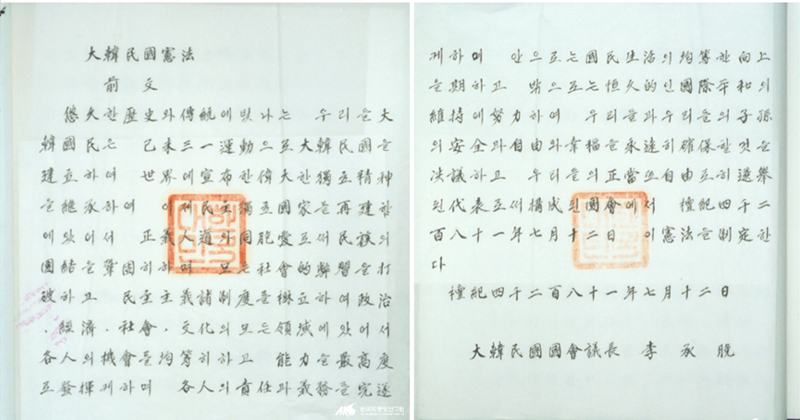 大韓民國憲法
前文
悠久한 歷史와 傳統에 빛나는 우리들 大
韓國民은 己未三一運動으로 大韓民國을
建立하여 世界에 宣布한 偉大한 獨立精神
을 繼承하여 이제 民主獨立國家를 再建함
에 있어서 正義人道와 同胞愛로써 民族의
團結을 鞏固히하며 모든 社會的 弊習을 打
破하고 民主主義諸制度를 樹立하여 政治
, 經濟, 社會, 文化의 모든 領域에 있어서
各人의 機會를 均等히 하고 能力을 最高度
로 發揮케하며 各人의 責任과 義務를 完遂
케하여 안으로는 國民生活의 均等한 向上
을 期하고 밖으로는 恒久的인 國際平和의
維持에 努力하여 우리들과 우리들의 子孫
의 安全과 自由와 幸福을 永遠히 確保할 것을
決議하고 우리들의 正當 또 自由로히 選擧
된 代表로써 構成된 國會에서 檀紀四千二
百八十一年七月十二日 이 憲法을 制定한
다
檀紀四千二百八十一年七月十二日
大韓民國國會議長 李承晩